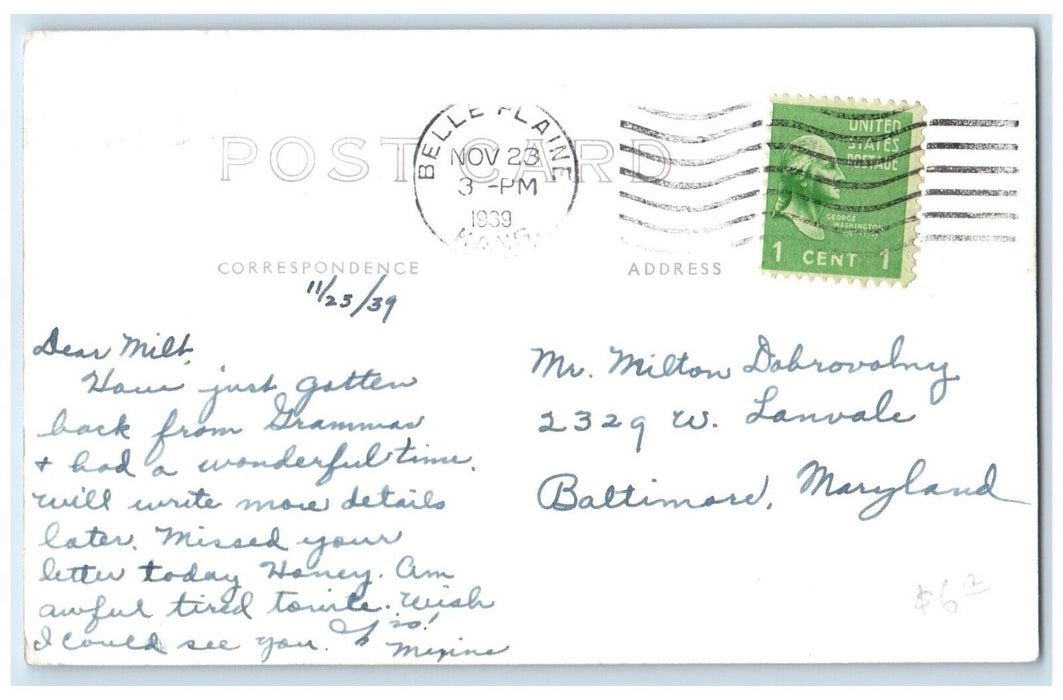 POST CARD
BELLE PLAINE
NOV 23
3 -PM
1939
KANS.
UNITED
STATES
POSTAGE
GEORGE
WASHINGTON
1 CENT 1
CORRESPONDENCE
ADDRESS
11/23/39
Dear Milt,
Have just gotten
back from Grammar
+ had a wonderful time.
Will write more details
later. Missed your
letter today Honey. Am
awful tired tonite. Wish
I could see you.
Maxine
Mr. Milton Dobrovolny
2329 W. Lanvale
Baltimore, Maryland
$6